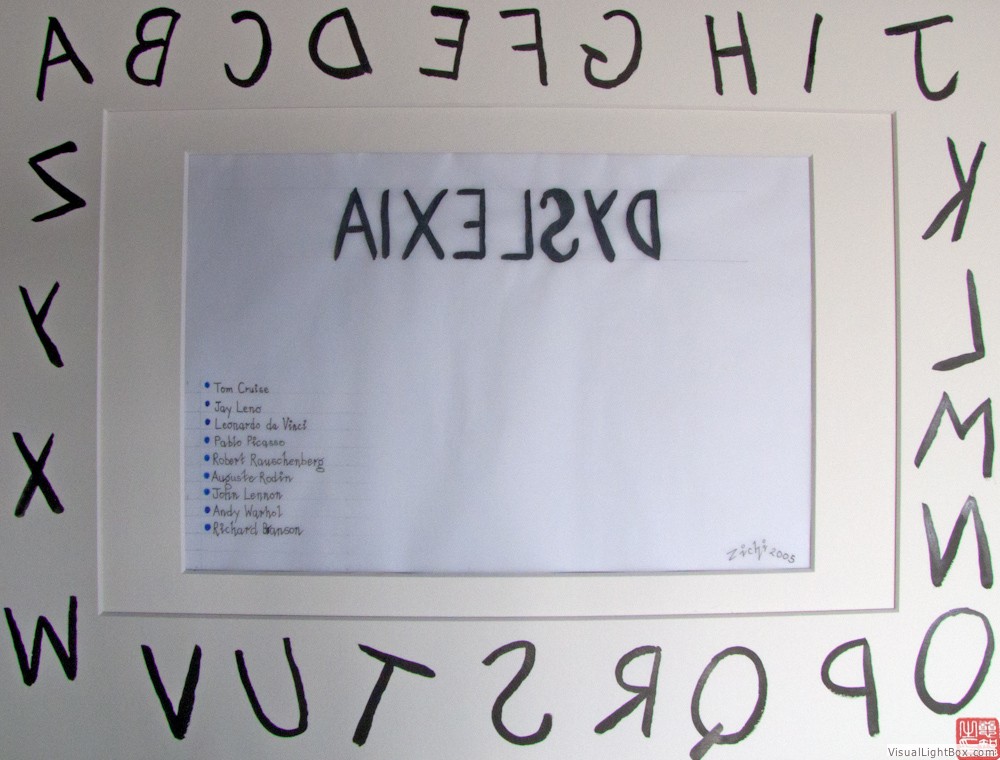 A B C D E F G H I J
K
L
M
N
O
P
Q
R
S
T
U
V
W
X
Y
Z
DYSLEXIA
Tom Cruise
Jay Leno
Leonardo de Visci
Pablo Picasso
Robert Rauschenberg
Auguste Rodin
John Lennon
Andy Warhol
Richard Branson
Zichi 2005
VisualLightBox.com